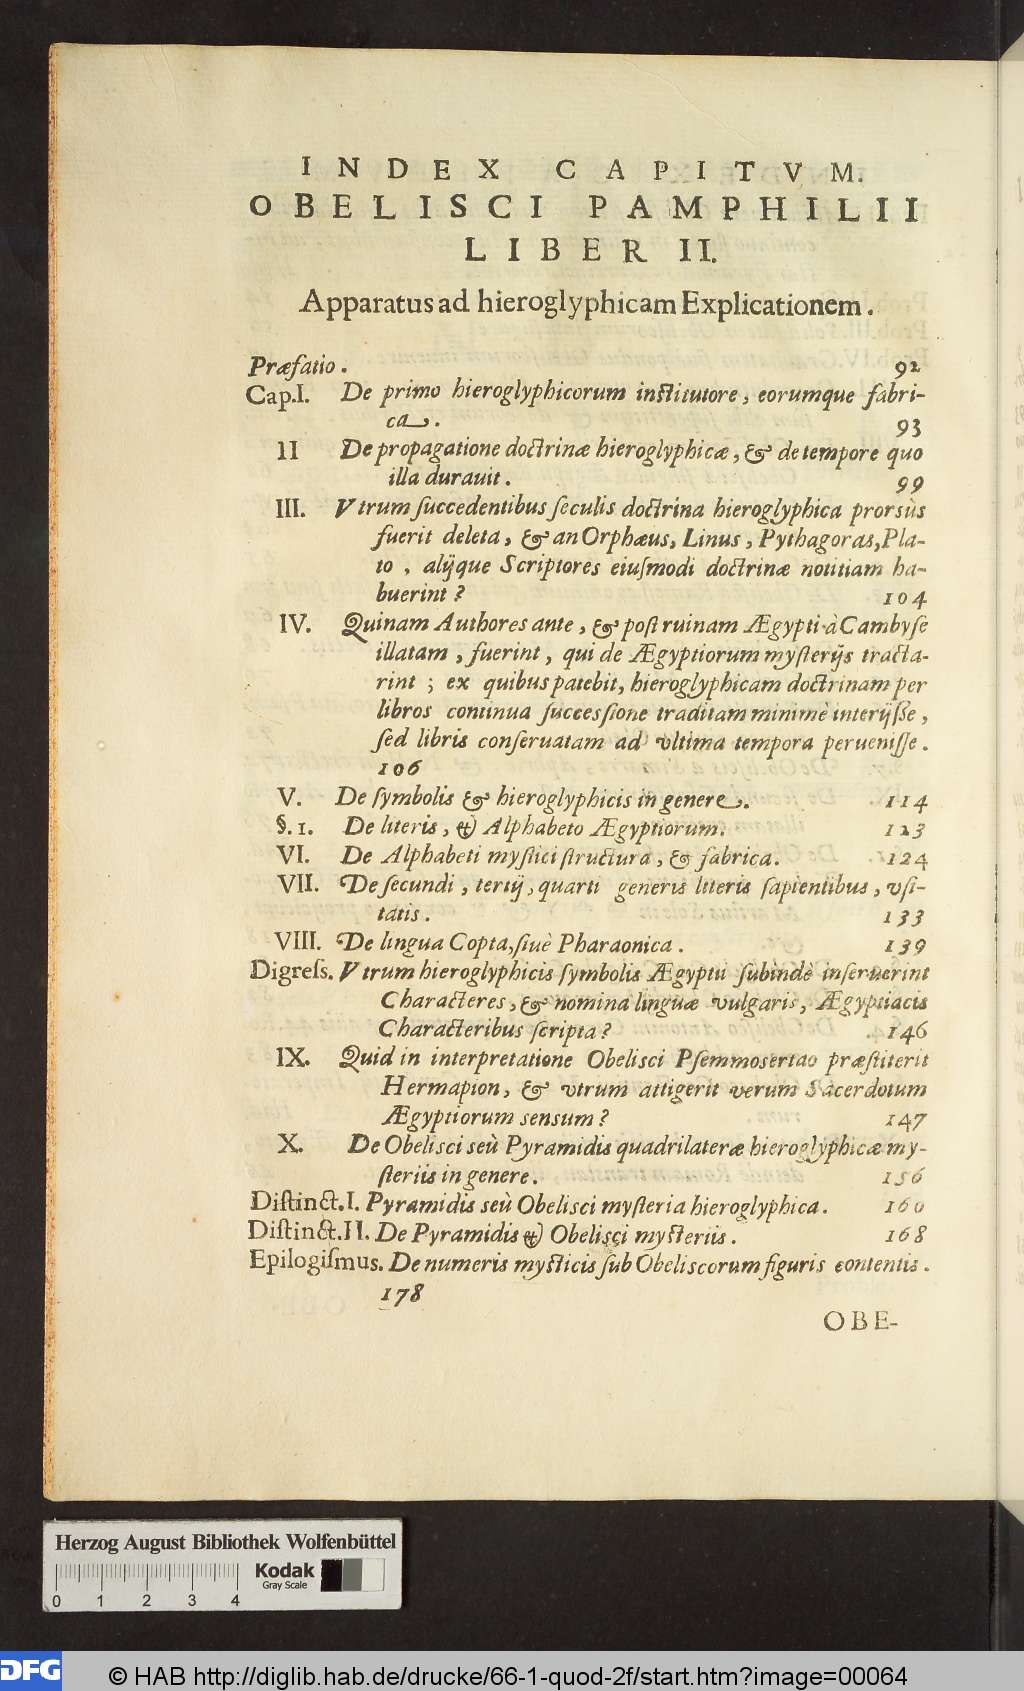 INDEX CAPITVM.
OBELISCI PAMPHILII
LIBER II.
Apparatus ad hieroglyphicam Explicationem.
Præfatio. 92
Cap.I. De primo hieroglyphicorum institutore, eorumque fabri-
ca. 93
II De propagatione doctrinæ hieroglyphicæ, & de tempore quo
illa durauit. 99
III. Vtrum ſuccedentibus ſeculis doctrina hieroglyphica prorsùs
fuerit deleta, & an Orphæus, Linus, Pythagoras, Pla-
to, alijque Scriptores eiuſmodi doctrinæ notitiam ha-
buerint? 104
IV. Quinam Authores ante, & poſt ruinam Ægypti à Cambyſe
illatam, fuerint, qui de Ægyptiorum myſterijs tracta-
rint; ex quibus patebit, hieroglyphicam doctrinam per
libros continua ſucceſsione traditam minimè interijſſe,
ſed libris conſeruatam ad vltima tempora perueniſſe.
106
V. De ſymbolis & hieroglyphicis in genere. 114
§.1. De literis, & Alphabeto Ægyptiorum. 123
VI. De Alphabeti myſtici ſtructura, & fabrica. 124
VII. De ſecundi, tertij, quarti generis literis ſapientibus, vſi-
tatis. 133
VIII. De lingua Copta, ſiuè Pharaonica. 139
Digreſs. Vtrum hieroglyphicis ſymbolis Ægyptii ſubindè inſeruerint
Characteres, & nomina linguæ vulgaris, Ægyptiacis
Characteribus ſcripta? 146
IX. Quid in interpretatione Obelisci Pſemmosertao præſtiterit
Hermapion, & vtrum attigerit verum Sacerdotum
Ægyptiorum sensum? 147
X. De Obelisci seù Pyramidis quadrilateræ hieroglyphicæ my-
ſteriis in genere. 156
Diſtinct.I. Pyramidis seù Obelisci myſteria hieroglyphica. 160
Diſtinct.II. De Pyramidis & Obelisci myſteriis. 168
Epilogiſmus. De numeris myſticis ſub Obeliscorum figuris contentis.
178
OBE-
Herzog August Bibliothek Wolfenbüttel
Kodak
Gray Scale
0 1 2 3 4
DFG © HAB http://diglib.hab.de/drucke/66-1-quod-2f/start.htm?image=00064